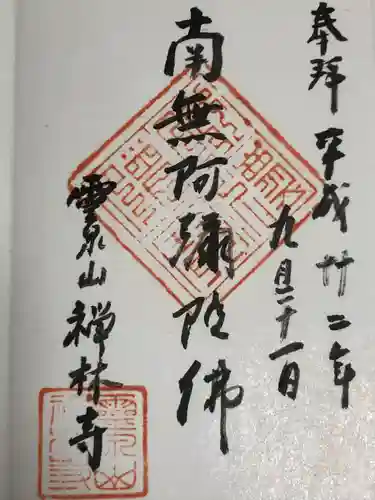 奉拝 平成廿二年
九月二十一日
南無阿彌陀佛
霊泉山 禅林寺